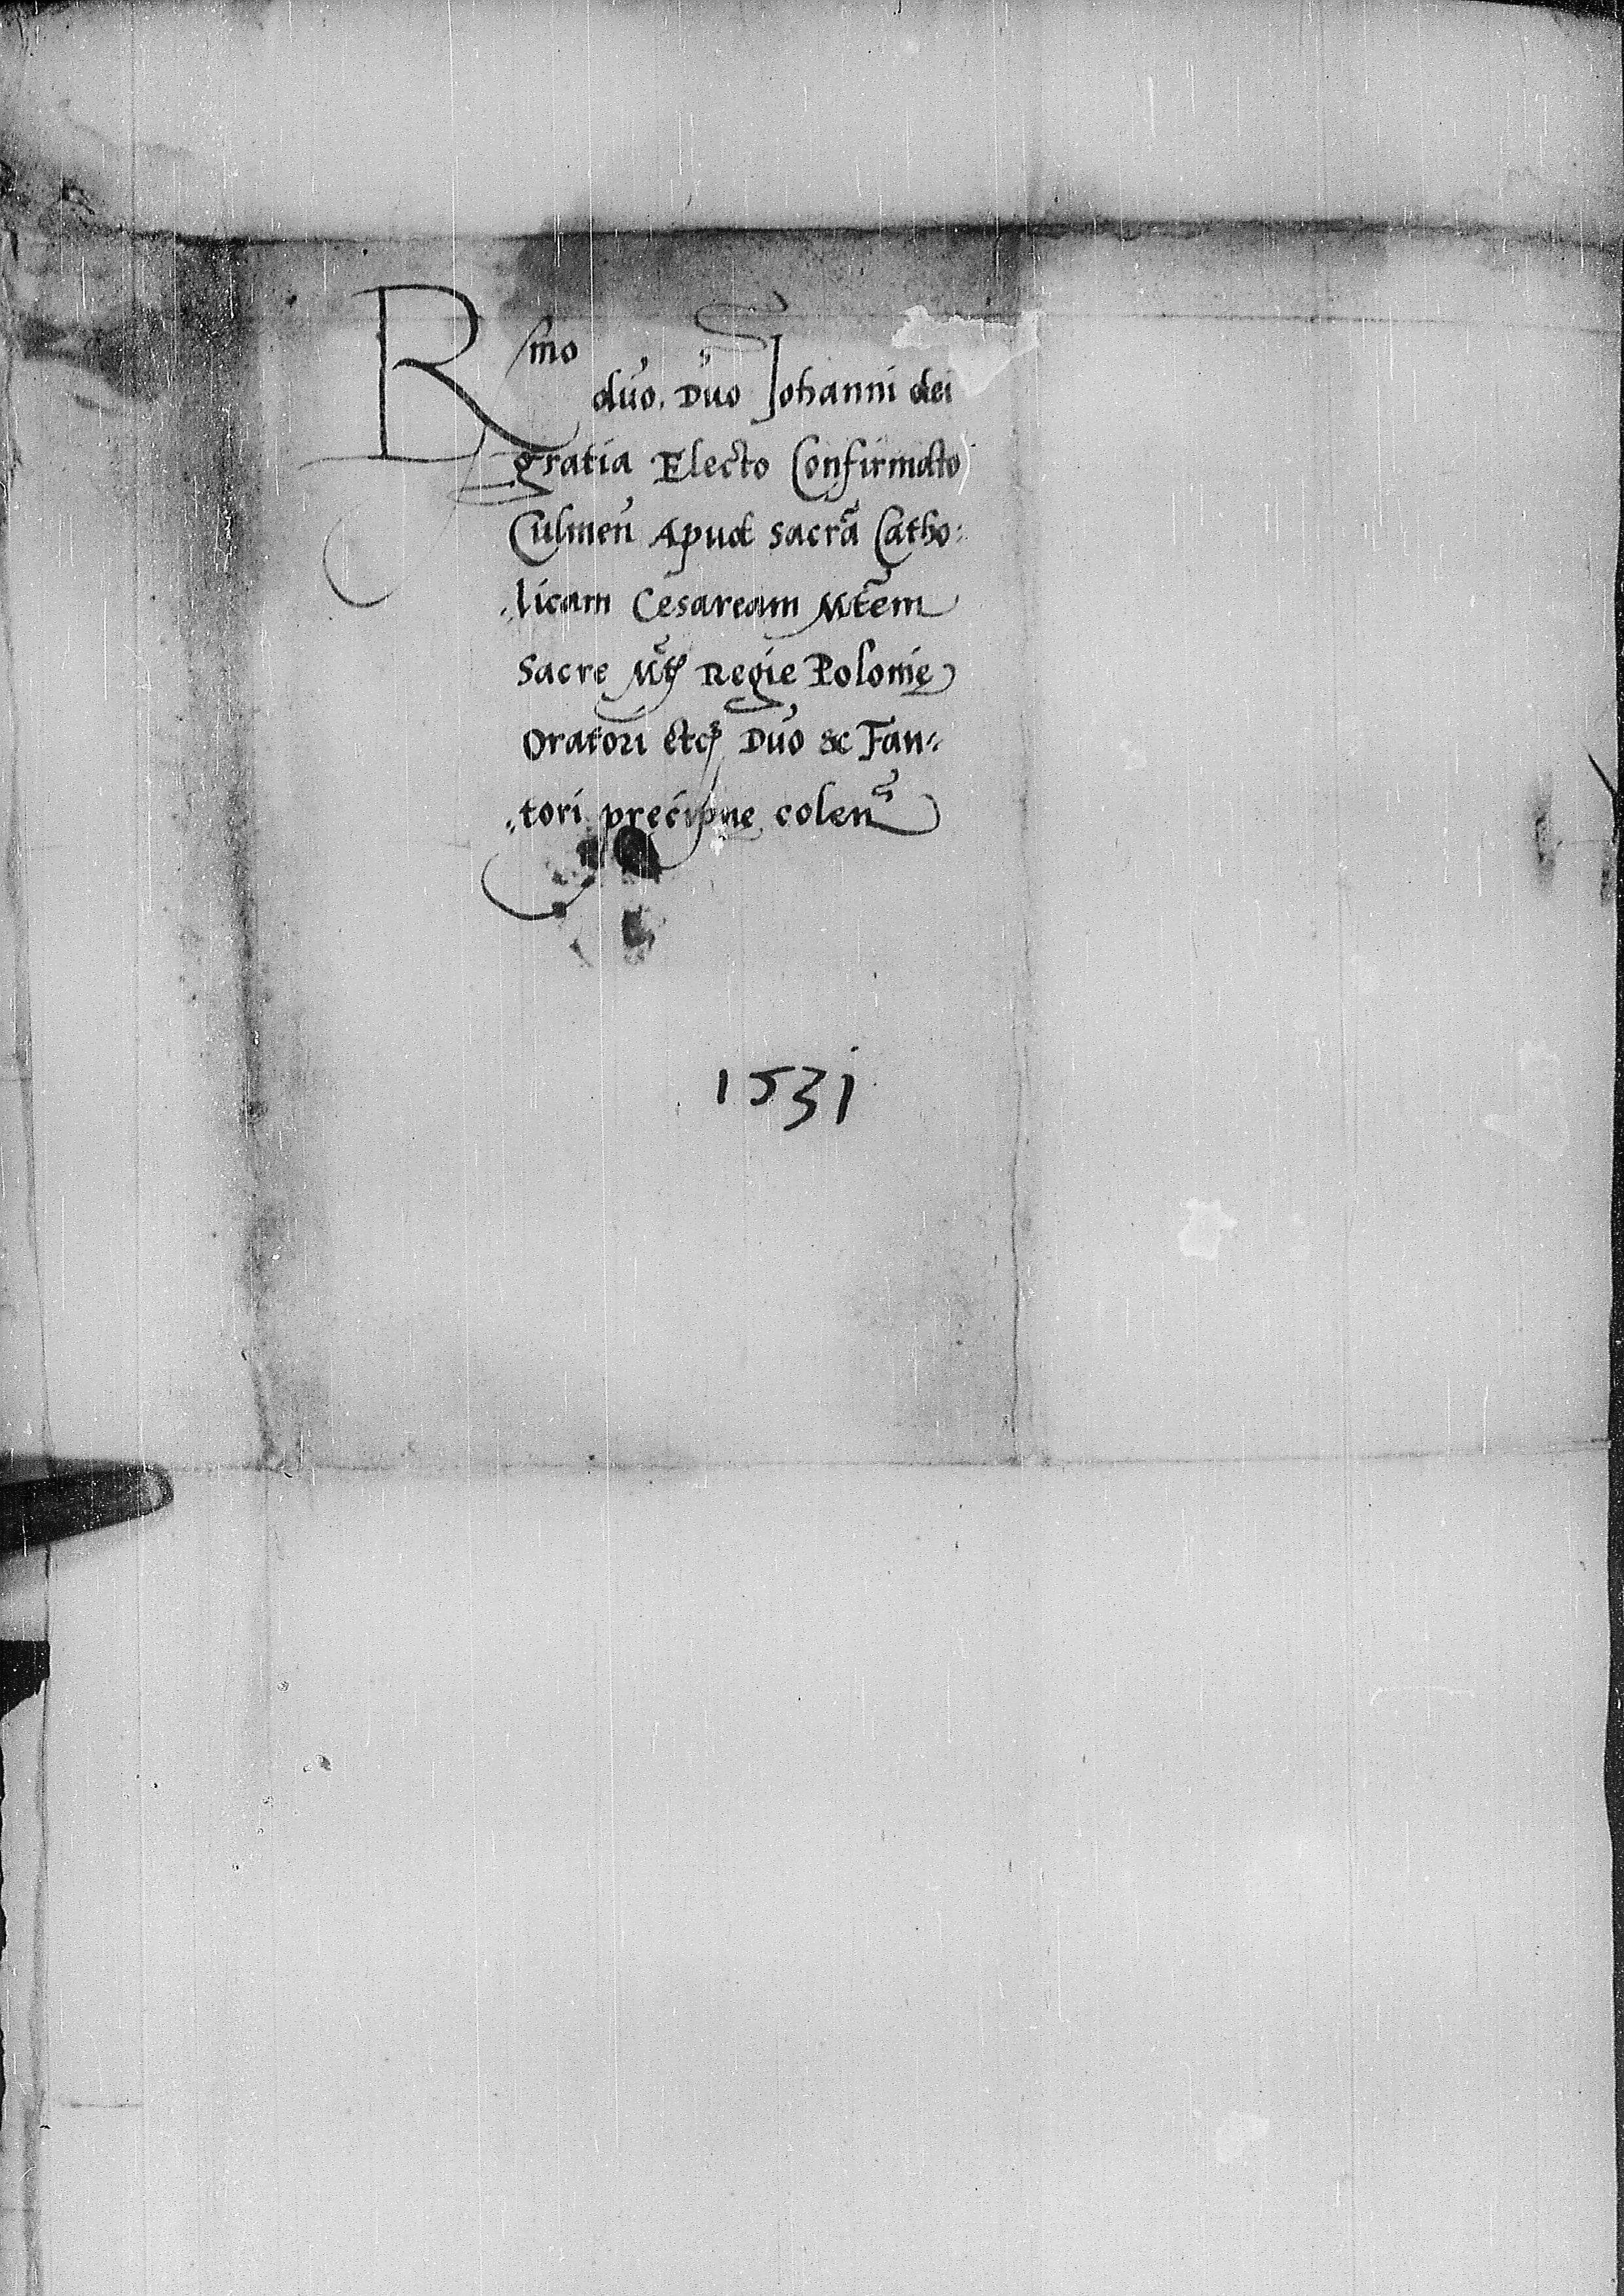 Rssmo
dno. Dno Johanni dei
gratia Electo Confirmato
Culmen̄ Apud sacrā Catho:
licam Cesaream Mtem
Sacre Mtis Regie Polonię
Oratori etc Dno & Fau:
tori precipue colen
1531